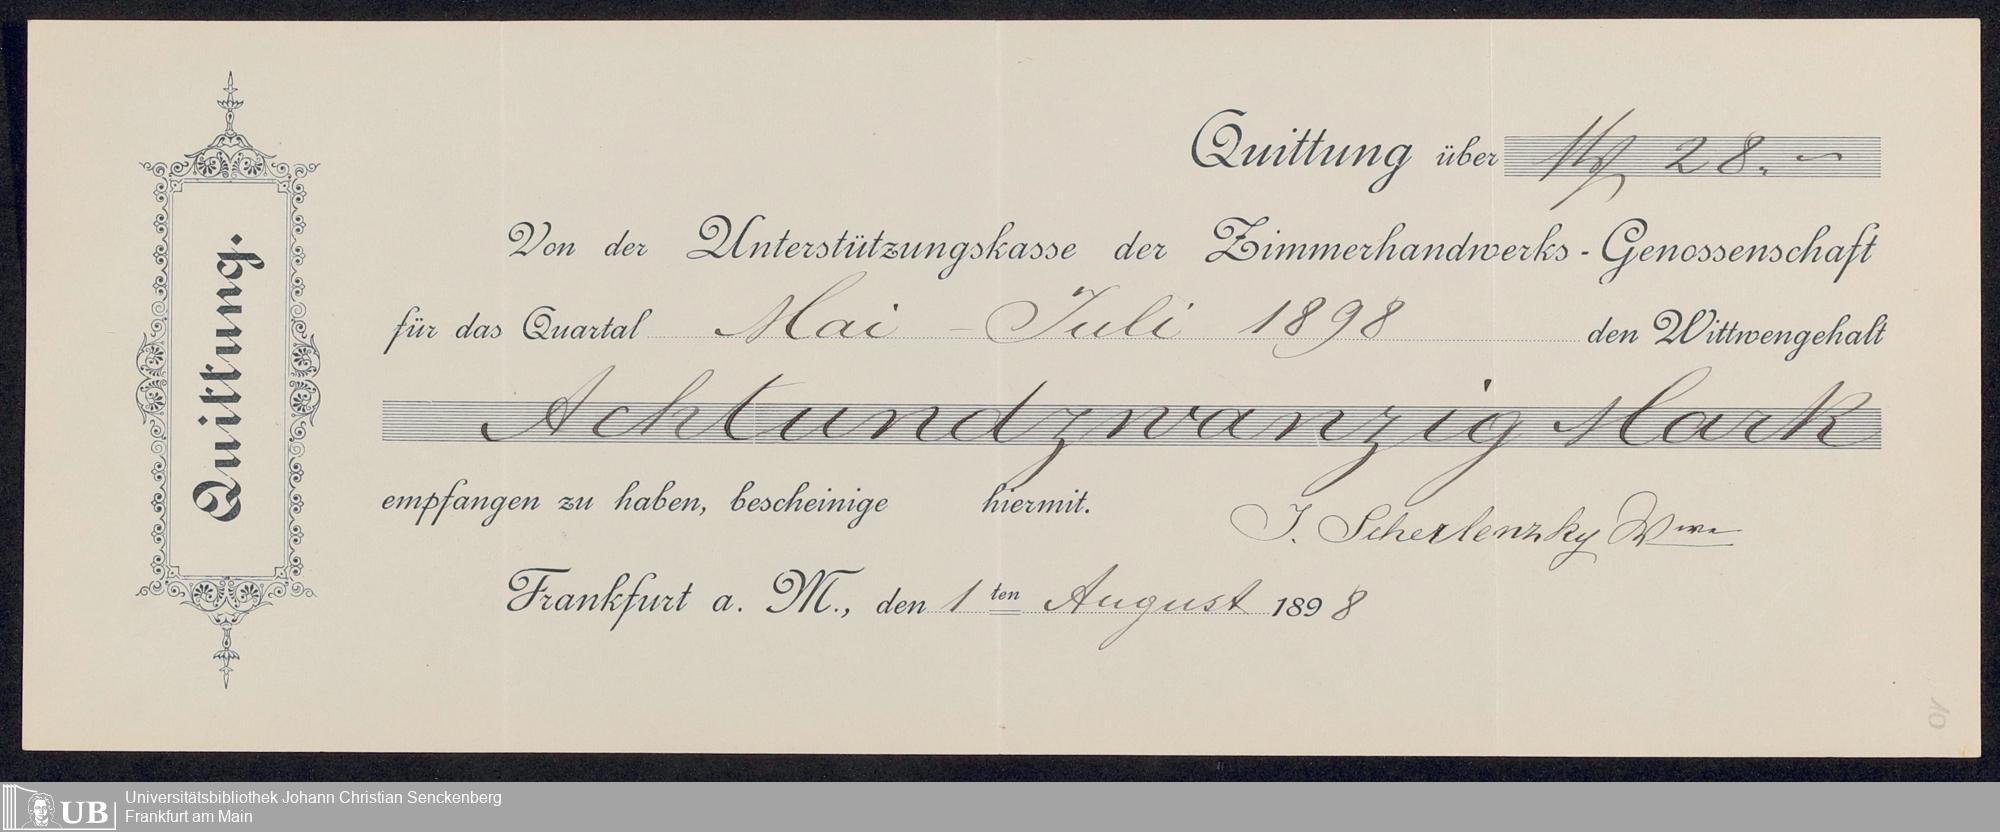 Quittung.
Quittung über M 28.–
Von der Unterstützungskasse der Zimmerhandwerks-Genossenschaft
für das Quartal Mai – Juli 1898 den Wittwengehalt
Achtundzwanzig Mark
empfangen zu haben, bescheinige hiermit.
J. Scherlenzky Wwe
Frankfurt a. M., den 1ten August 1898
10
UB
Universitätsbibliothek Johann Christian Senckenberg
Frankfurt am Main